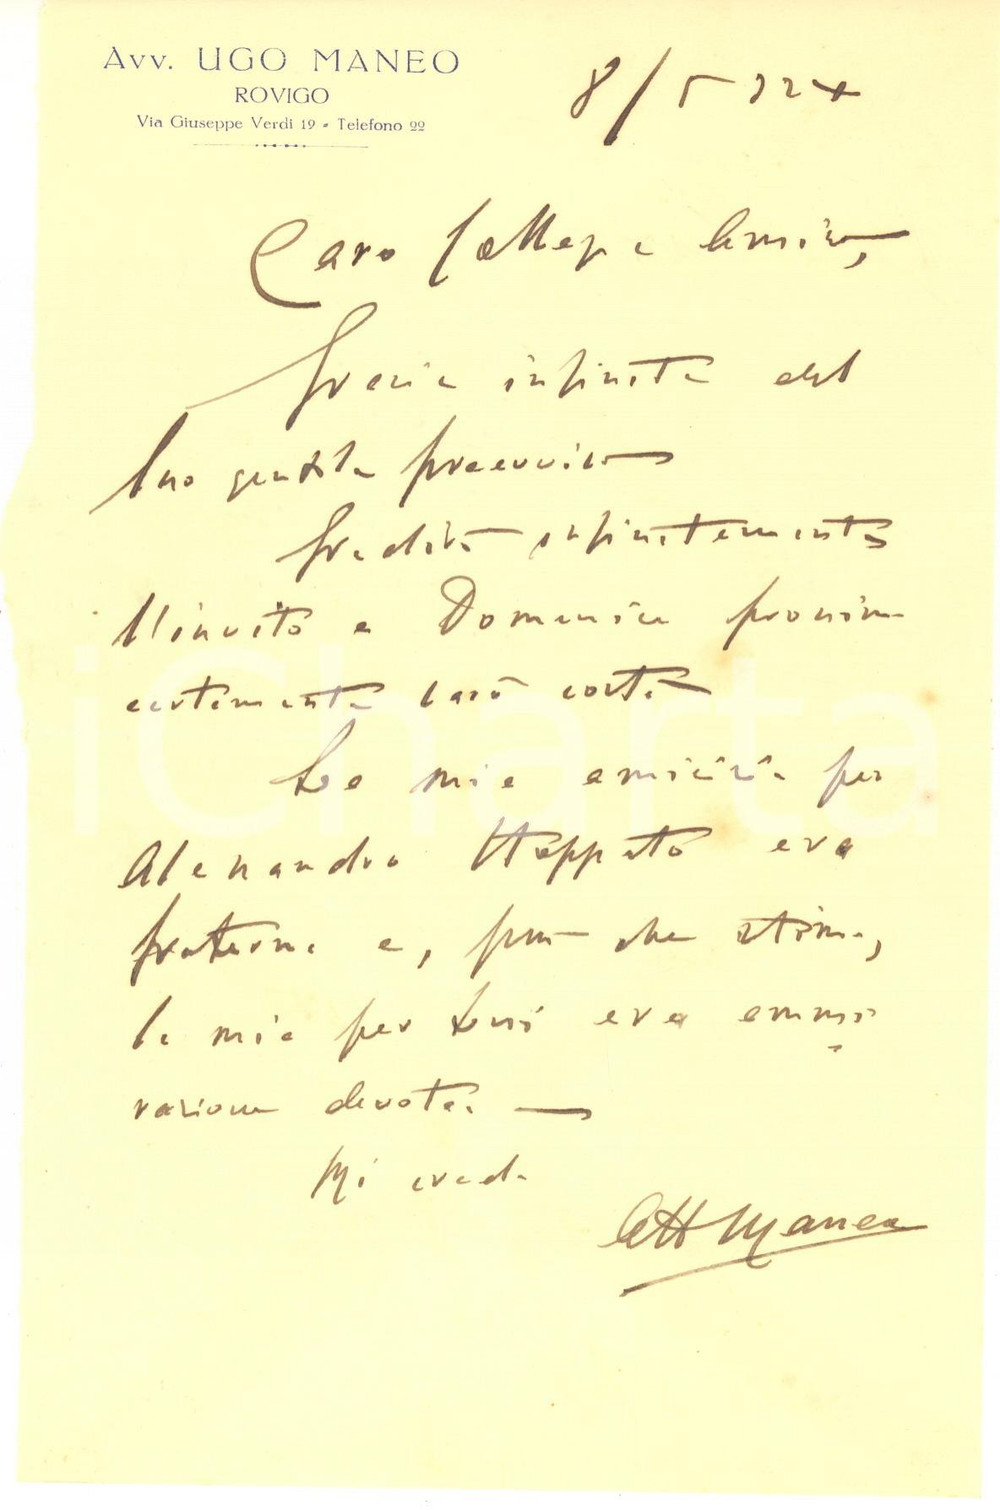 Avv. UGO MANEO
ROVIGO
Via Giuseppe Verdi 19 - Telefono 22
8/5
Caro Collega e Amico,
Grazie infinite del
Suo gentile preavviso
Gradito infinitamente
l'invito e Domenica prossima
certamente sarò costà
La mia amicizia per
Alessandro Stoppato era
fraterna e, più che stima,
la mia per Lui era ammi
razione devota.
Mi creda
Maneo
iCharta